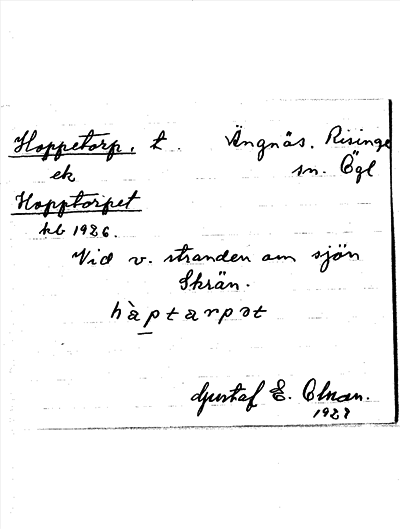 Hoppetorp, t. Ängnäs. Risinge
ek sn. Ögl
Hopptorpet
kb 1926.
Vid v. stranden om sjön
Skrän.
hàptarpət
Gustaf E. Olson.
1928